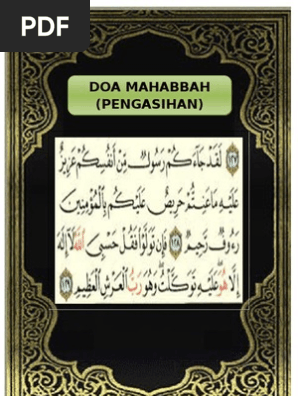 PDF
DOA MAHABBAH
(PENGASIHAN)
لَقَدْ جَآءَكُمْ رَسُولٌ مِّنْ أَنفُسِكُمْ عَزِيزٌ
عَلَيْهِ مَا عَنِتُّمْ حَرِيصٌ عَلَيْكُم بِٱلْمُؤْمِنِينَ
رَءُوفٌ رَّحِيمٌ ١٢٨ فَإِن تَوَلَّوْا۟ فَقُلْ حَسْبِىَ ٱللَّهُ لَآ إِلَٰهَ
إِلَّا هُوَ عَلَيْهِ تَوَكَّلْتُ وَهُوَ رَبُّ ٱلْعَرْشِ ٱلْعَظِيمِ